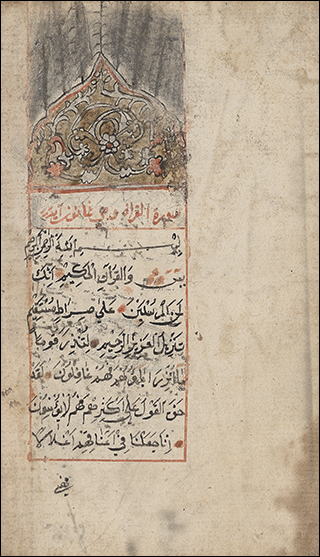 القران وهي ثمانون
بسم الله الرحمن الرحيم
يس والقران الحكيم انك
لمن المرسلين على صراط مستقيم
تنزيل العزيز الرحيم لتنذر قوما
ما انذر اباؤهم فهم غافلون لقد
حق القول على اكثرهم فهم لا يؤمنون
انا جعلنا في اعناقهم اغلالا
فهي